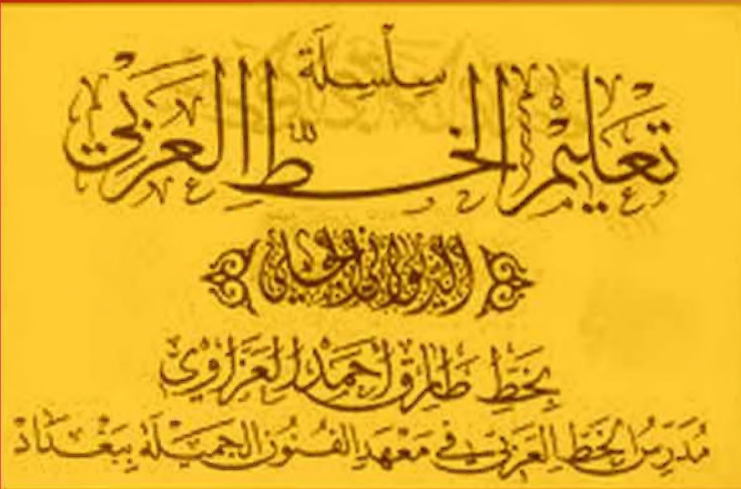 سِلْسِلَة
تَعْليمُ الخَطِّ العَرَبيّ
بِخَطِّ طَارِق أَحمَد العَزَاوي
مُدَرِسُ الخَطِ العَرَبي في مَعْهَدِ الفُنُونِ الجَميلَةِ بِبَغْدَادْ